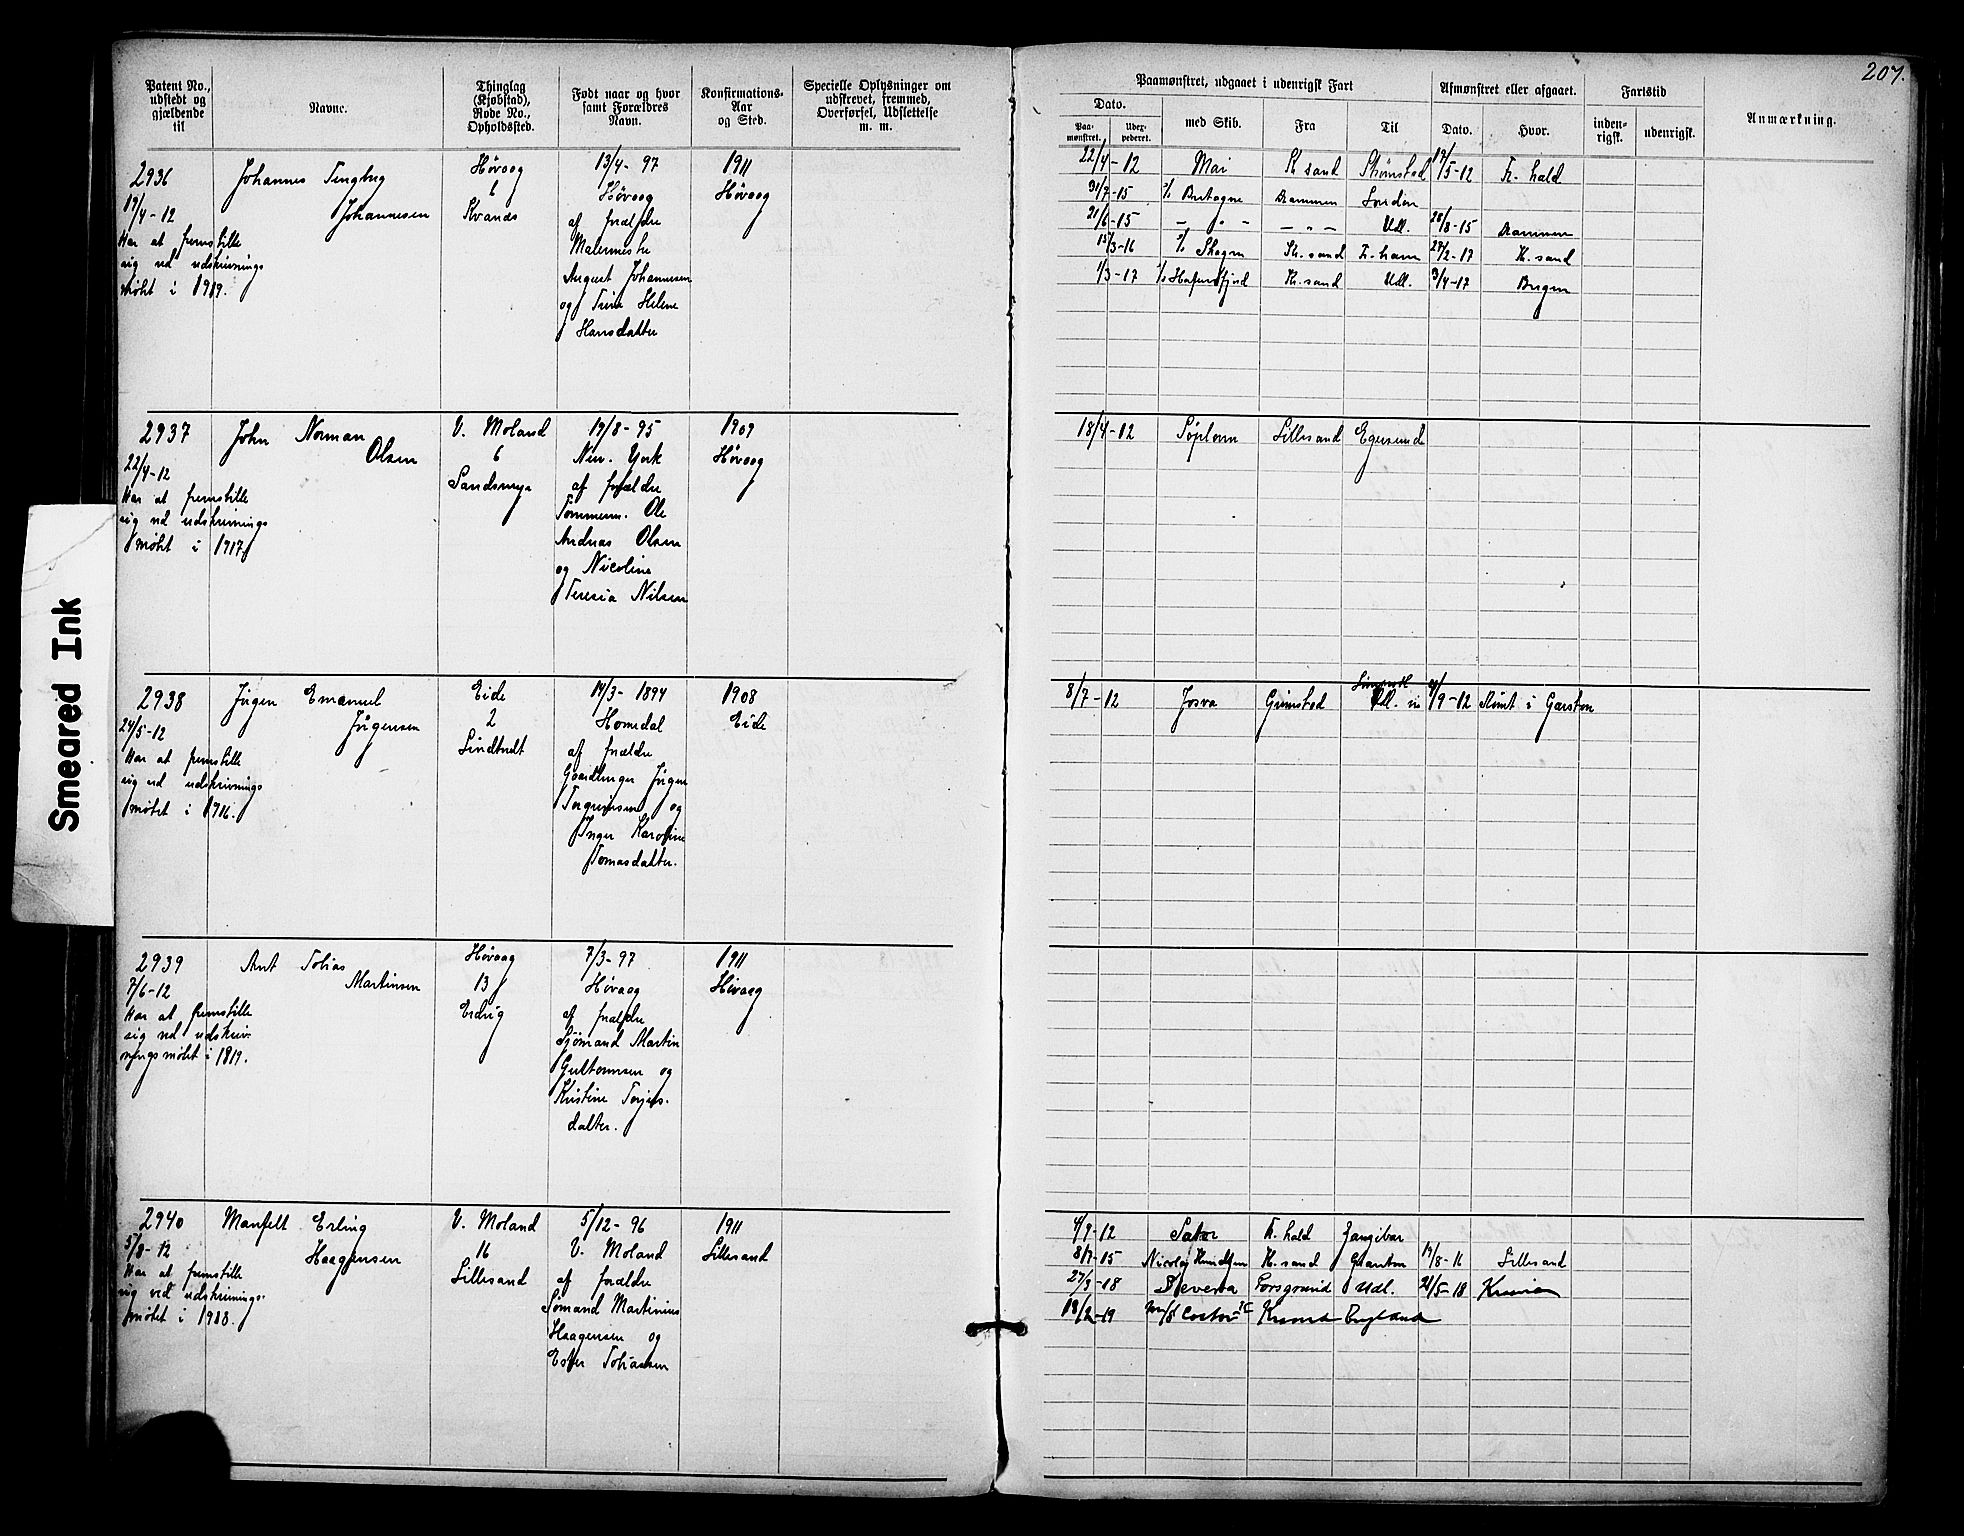 207.
Patent No., udstedt og gjældende til
Navne.
Thinglag (Kjøbstad), Rode No., Opholdssted.
Født naar og hvor samt Forældres Navn.
Konfirmations-Aar og Sted.
Specielle Oplysninger om udskrevet, fremmed, Overførsel, Udslettelse m. m.
Paamønstret, udgaaet i udenrigsk Fart
Dato.
Paamønstret.
Udexpederet.
med Skib.
Fra
Til
Afmønstret eller afgaaet.
Dato.
Hvor.
Fartstid
indenrigsk.
udenrigsk.
Anmærkning.
2936
19/4-12
Har at fremstille
sig ved udskrivnings
møtet i 1919.
Johannes Tingberg
Johannesen
Høvaag
6
Kvanes
13/4-97
Høvaag
af forældre
Malermester
August Johannesen
og Trine Helene
Hansdatter
1911
Høvaag
22/4-12 Mai Kr sand Strømstad 19/5-12 Fr. hald
31/7-15 Bretagne Drammen London
21/6-15 - " - - " - Udl. 28/8-15 Drammen
15/3-16 Skogen Kr. sand F. havn 27/2-17 K. sand
1/3-17 Hafursfjord Kr. sand Udl. 3/4-17 Bergen
2937
22/4-12
Har at fremstille
sig ved udskrivnings
møtet i 1917
John Norman
Olsen
V. Moland
6
Sandsmyr
19/8-95
New. York
af forældre
Tømmerm. Ole
Andreas Olsen
og Nicoline
Teresia Nilsen
1909
Høvaag
18/4-12 Lillesand Egersund
2938
24/5-12
Har at fremstille
sig ved udskrivnings
møtet i 1916.
Jørgen Emanuel
Jørgensen
Eide
2
Lindtveit
14/3-1894
Homedal
af forældre
Gaardbruger Jørgen
og
Inger Karoline
Tomasdatter.
1908
Eide
8/7-12 Josva Grimstad Udl. 4/9-12 Rømt i Garston
2939
7/6-12
Har at fremstille
sig ved udskriv-
ningsmøtet i 1819.
Ant Tobias
Martinsen
Høvaag
13
7/3-97
Høvaag
af forældre
Sjømand Martin
og
Kristine Torjus-
datter.
1911
Høvaag
2940
5/8-12
Har at fremstille
sig ved udskrivnings-
møtet i 1918.
Manfelt Erling
Haagensen
V. Moland
16
Lillesand
5/12-96
V. Moland
af forældre
Sømand Martinius
Haagensen og
Ester Tobiassen
1911
Lillesand
4/9-12 Sator Fr. hald Zanzibar
8/7-15 Nicolay Knudtzen K. sand Granton 19/8-16 Lillesand
27/3-18 Porsgrund Udl. 21/5-18 Krania
18/2-19 Castor Krsand England
Smeared Ink